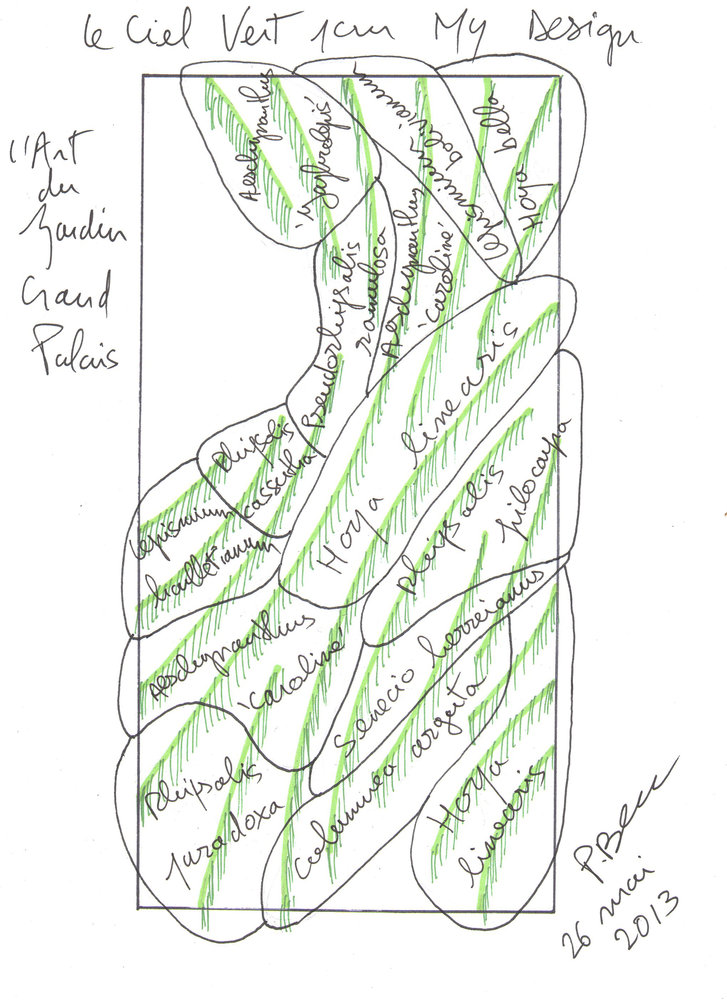 Le Ciel Vert 1cm My Design
l'Art
du
Jardin
Grand
Palais
Aeschynanthus
Lepismium
bolivianum
Hoya bella
Pseudorhipsalis
ramulosa
Aeschynanthus
'Caroline'
Hoya linearis
Rhipsalis
cassutha
Lepismium
houlletianum
Rhipsalis pilocarpa
Aeschynanthus
'Caroline'
Senecio herreianus
Columnea arguta
Rhipsalis
paradoxa
Hoya
linearis
26 mai
2013